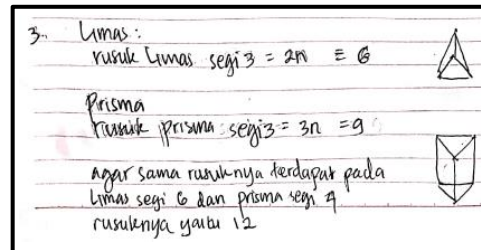 3. Limas :
rusuk Limas segi 3 = 2n = 6
Prisma
rusuk prisma segi 3 = 3n = 9
agar sama rusuknya terdapat pada
Limas segi 6 dan prisma segi 4
rusuknya yaitu 12